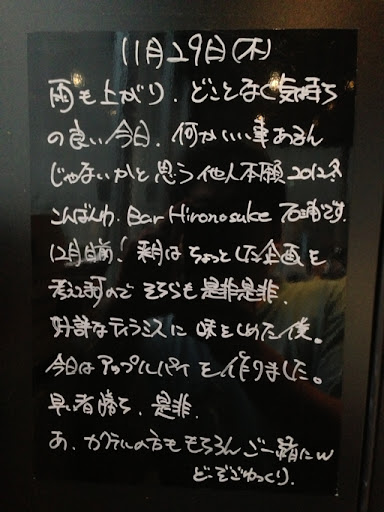 11月29日(木)
雨も上がり、どことなく気持ち
の良い今日、何かいい事あるん
じゃないかと思う他人本願2012冬
こんばんわ、Bar Hironosuke 石浦です。
12月目前! 来月はちょっとした企画を
考え中ので そちらも是非是非、
好評なティラミスに味をしめた僕。
今日はアップルパイを作りました。
早い者勝ち、是非、
あ、カクテルの方ももちろんご一緒にw
どーぞごゆっくり。